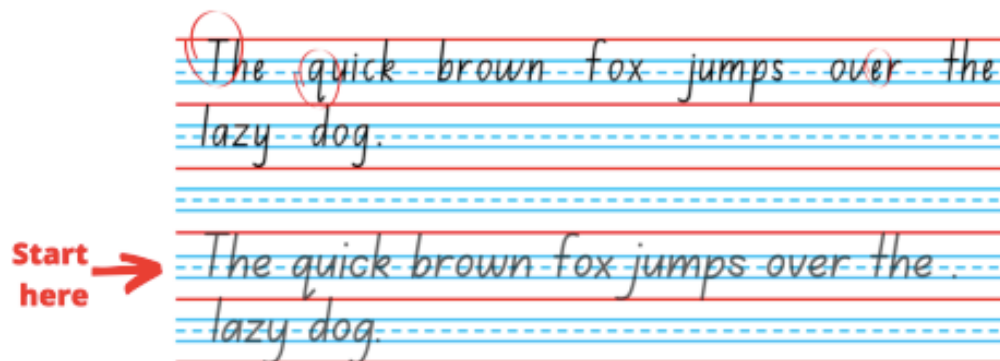 The quick brown fox jumps over the
lazy dog.
Start
here
The quick brown fox jumps over the .
lazy dog.